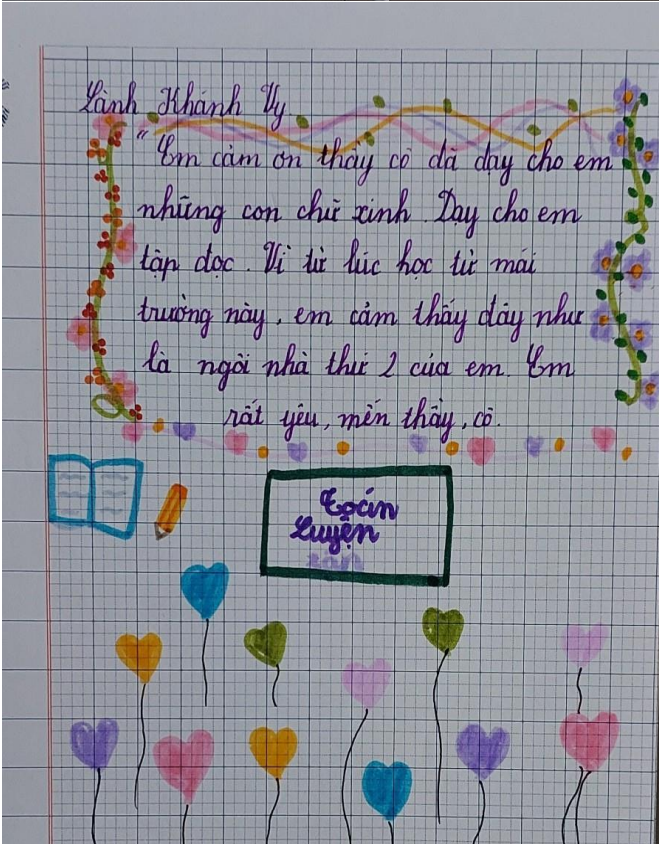 Lành Khánh Vy
"Em cảm ơn thầy cô đã dạy cho em
những con chữ xinh. Dạy cho em
tập đọc. Vì từ lúc học từ mái
trường này, em cảm thấy đây như
là ngôi nhà thứ 2 của em. Em
rất yêu, mến thầy, cô.
Toán
Luyện